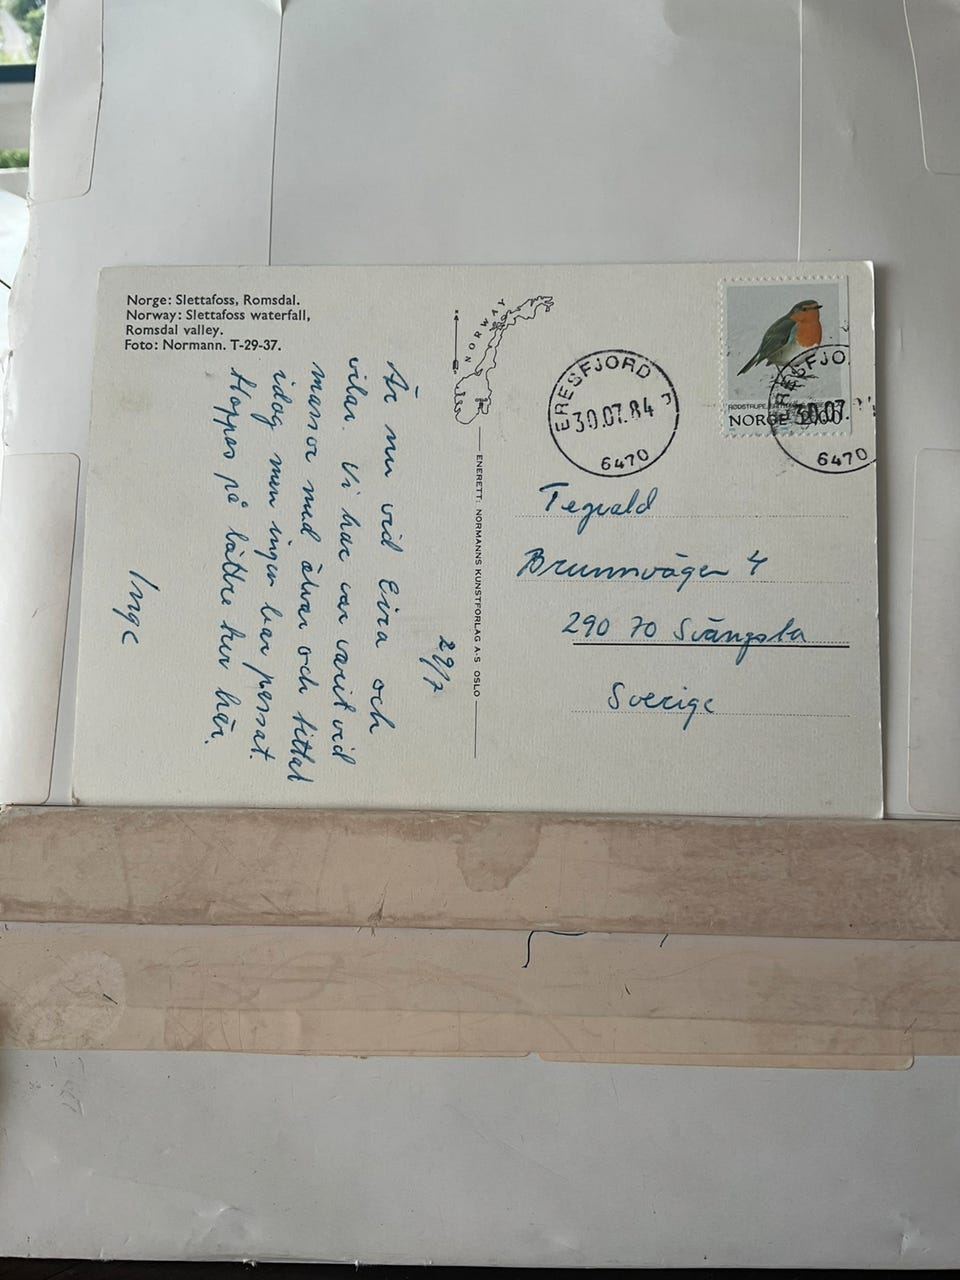 Norge: Slettafoss, Romsdal.
Norway: Slettafoss waterfall,
Romsdal valley.
Foto: Normann. T-29-37.
NORWAY
ENERETT: NORMANNS KUNSTFORLAG A-S OSLO
29/7
Är nu vid Eira och
vilar. Vi har varit vid
massor med älvar och tittat
idag men ingen har passat.
Hoppas på bättre tur här.
Inge
ERESFJORD
30.07.84
6470
RØDSTRUPE
NORGE 200
ERESFJO
30.07.
6470
Tegvald
Brunnvägen 4
290 70 Svängsta
Sverige